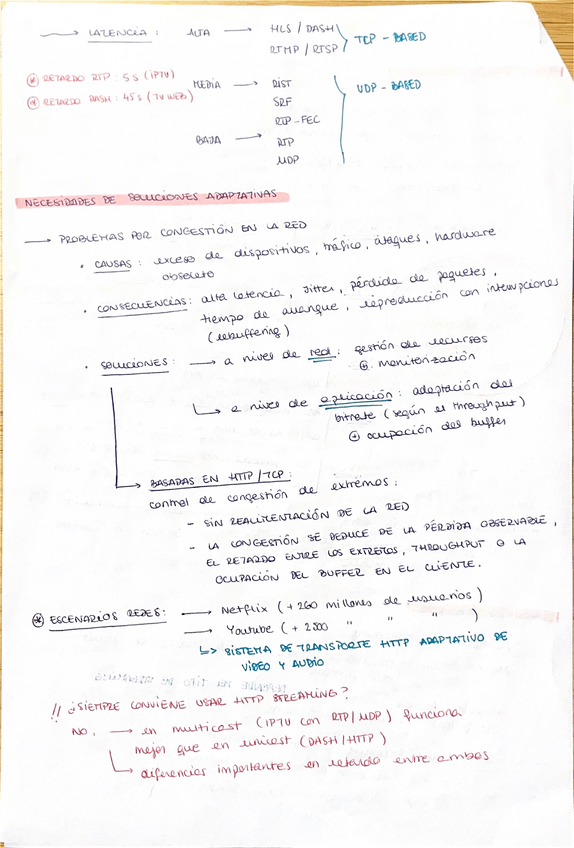 → LATENCIA : ALTA → HLS / DASH
RTMP / RTSP TCP - BASED
* RETARDO RTP : 5 s (IPTV)
* RETARDO DASH : 45 s (TV WEB)
MEDIA → RIST UDP - BASED
SRF
RTP - FEC
BAJA → RTP
UDP
NECESIDADES DE SOLUCIONES ADAPTATIVAS
→ PROBLEMAS POR CONGESTIÓN EN LA RED
• CAUSAS : exceso de dispositivos, tráfico, ataques, hardware
obsoleto
• CONSECUENCIAS : alta latencia, Jitter, pérdida de paquetes,
tiempo de arranque, reproducción con interrupciones
(rebuffering)
• SOLUCIONES : → a nivel de red : gestión de recursos
monitorización
↳ a nivel de aplicación : adaptación del
bitrate (según el throughput)
ocupación del buffer
→ BASADAS EN HTTP / TCP :
control de congestión de extremos :
- SIN REALIMENTACIÓN DE LA RED
- LA CONGESTIÓN SE DEDUCE DE LA PÉRDIDA OBSERVABLE,
EL RETARDO ENTRE LOS EXTREMOS, THROUGHPUT O LA
OCUPACIÓN DEL BUFFER EN EL CLIENTE.
* ESCENARIOS REDES : → Netflix (+ 260 millones de usuarios)
→ Youtube (+ 2500 " " " )
↳ SISTEMA DE TRANSPORTE HTTP ADAPTATIVO DE
VÍDEO Y AUDIO
!! ¿SIEMPRE CONVIENE USAR HTTP STREAMING?
NO, → en multicast (IPTV con RTP / UDP) funciona
mejor que en unicast (DASH / HTTP)
↳ diferencias importantes en retardo entre ambos